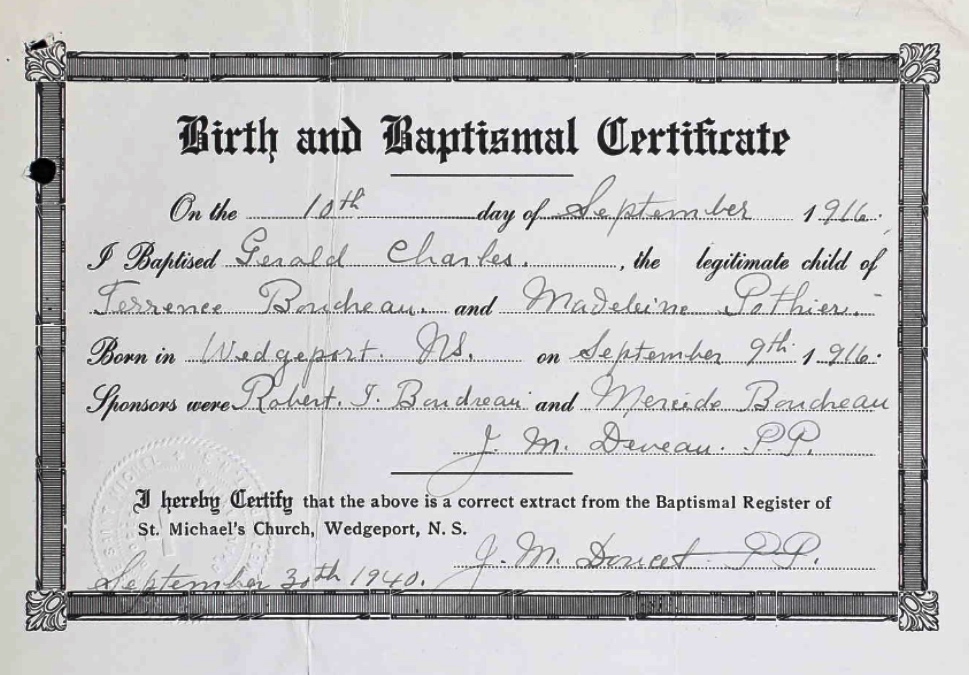 Birth and Baptismal Certificate
On the 10th day of September 1916.
I Baptised Gerald Charles. , the legitimate child of
Terrence Boudreau. and Madeleine Pothier.
Born in Wedgeport. NS. on September 9th 1916.
Sponsors were Robert. T. Boudreau and Boudreau
J. M. Deveau. P.P.
I hereby Certify that the above is a correct extract from the Baptismal Register of
St. Michael's Church, Wedgeport, N. S.
J. M. Doucet P.P.
September 30th 1940.